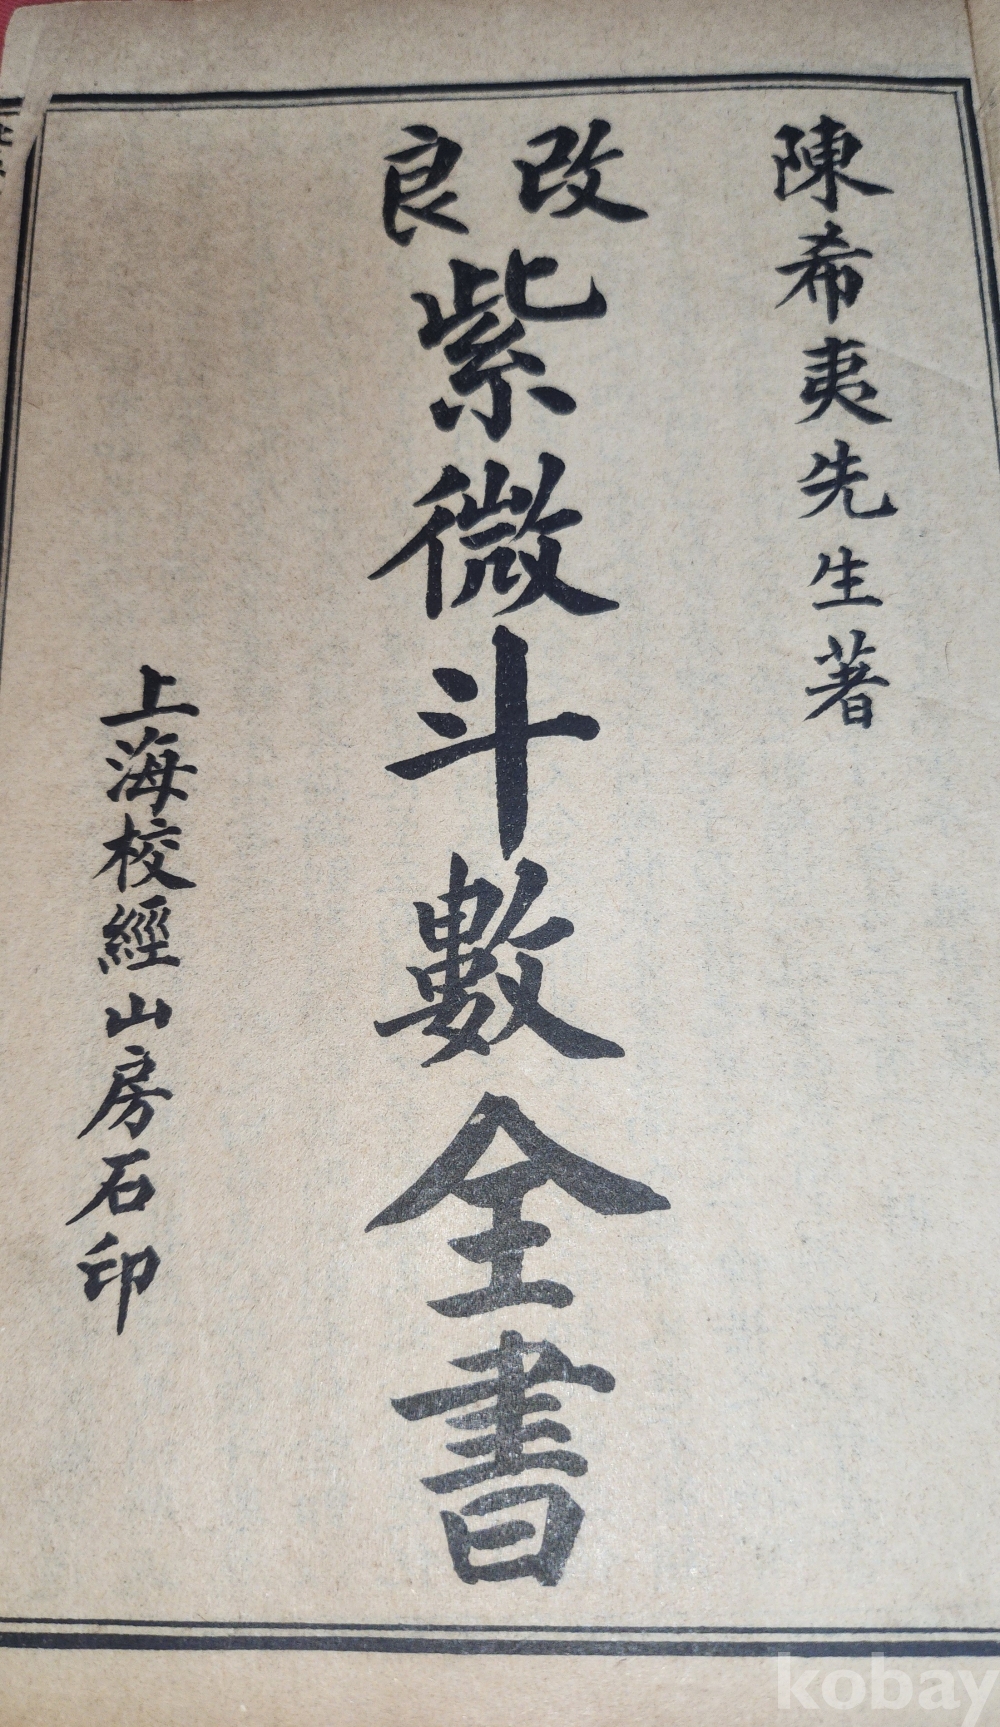 陳希夷先生著
改良
紫微斗數全書
上海校經山房石印
kobay